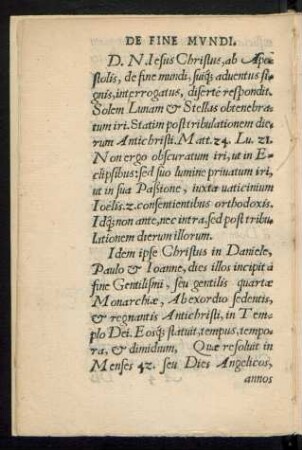 DE FINE MVNDI.
D. N. Iesus Christus, ab Apo-
stolis, de fine mundi, suíq; aduentus si-
gnis, interrogatus, disertè respondit.
Solem Lunam & Stellas obtenebra-
tum iri. Statim post tribulationem die-
rum Antichristi. Matt. 24. Lu. 21.
Non ergo obscuratum iri, ut in E-
clipsibus: sed suo lumine priuatum iri,
ut in sua Passione, iuxta uaticinium
Ioelis. 2. consentientibus orthodoxis.
Idq; non ante, nec intra. sed post tribu-
lationem dierum illorum.
Idem ipse Christus in Daniele,
Paulo & Ioanne, dies illos incipit à
fine Gentilismi, seu gentilis quartæ
Monarchiæ, Ab exordio sedentis,
& regnantis Antichristi, in Tem-
plo Dei. Eosq; statuit, tempus, tempo-
ra, & dimidium, Quæ resoluit in
Menses 42. seu Dies Angelicos,
annos